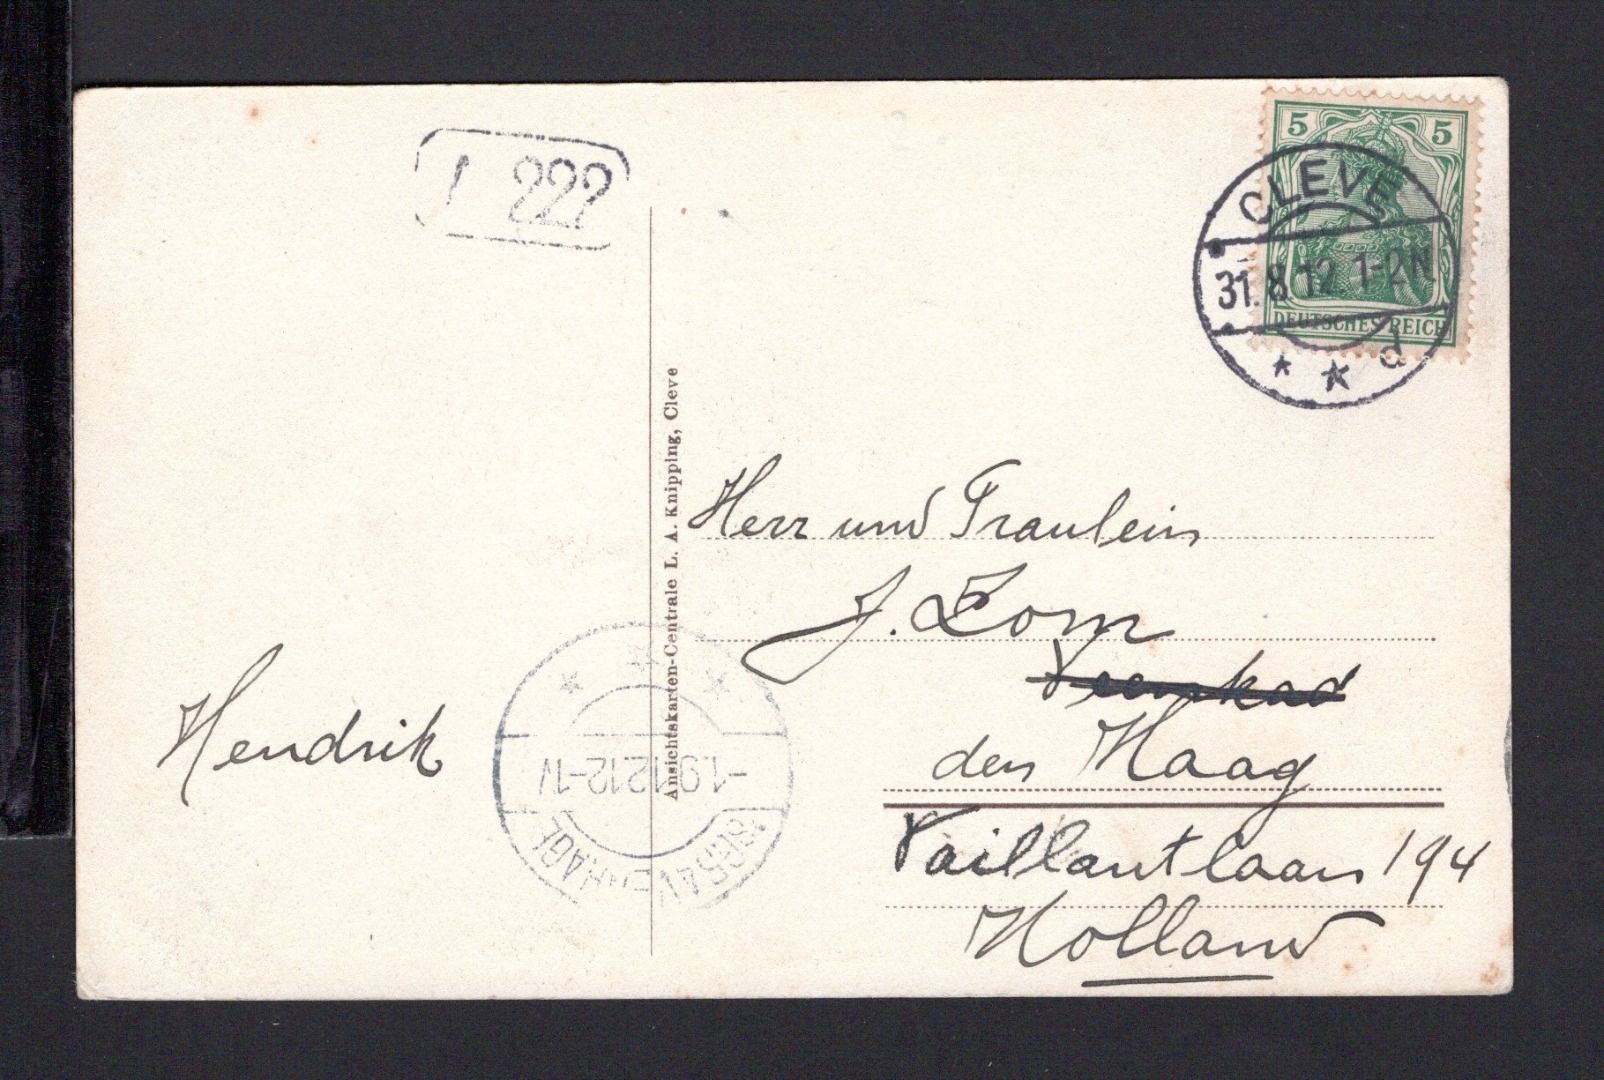 1 222
5 5
DEUTSCHES REICH
CLEVE
31.8.12.1-2N
* * d
Ansichtskarten-Centrale L. A. Knipping, Cleve
Herr und Fraulein
J. Zom
den Haag
Vaillantlaan 194
Holland
Hendrik
-1.9.12.12-1V
'SGRAVENHAGE